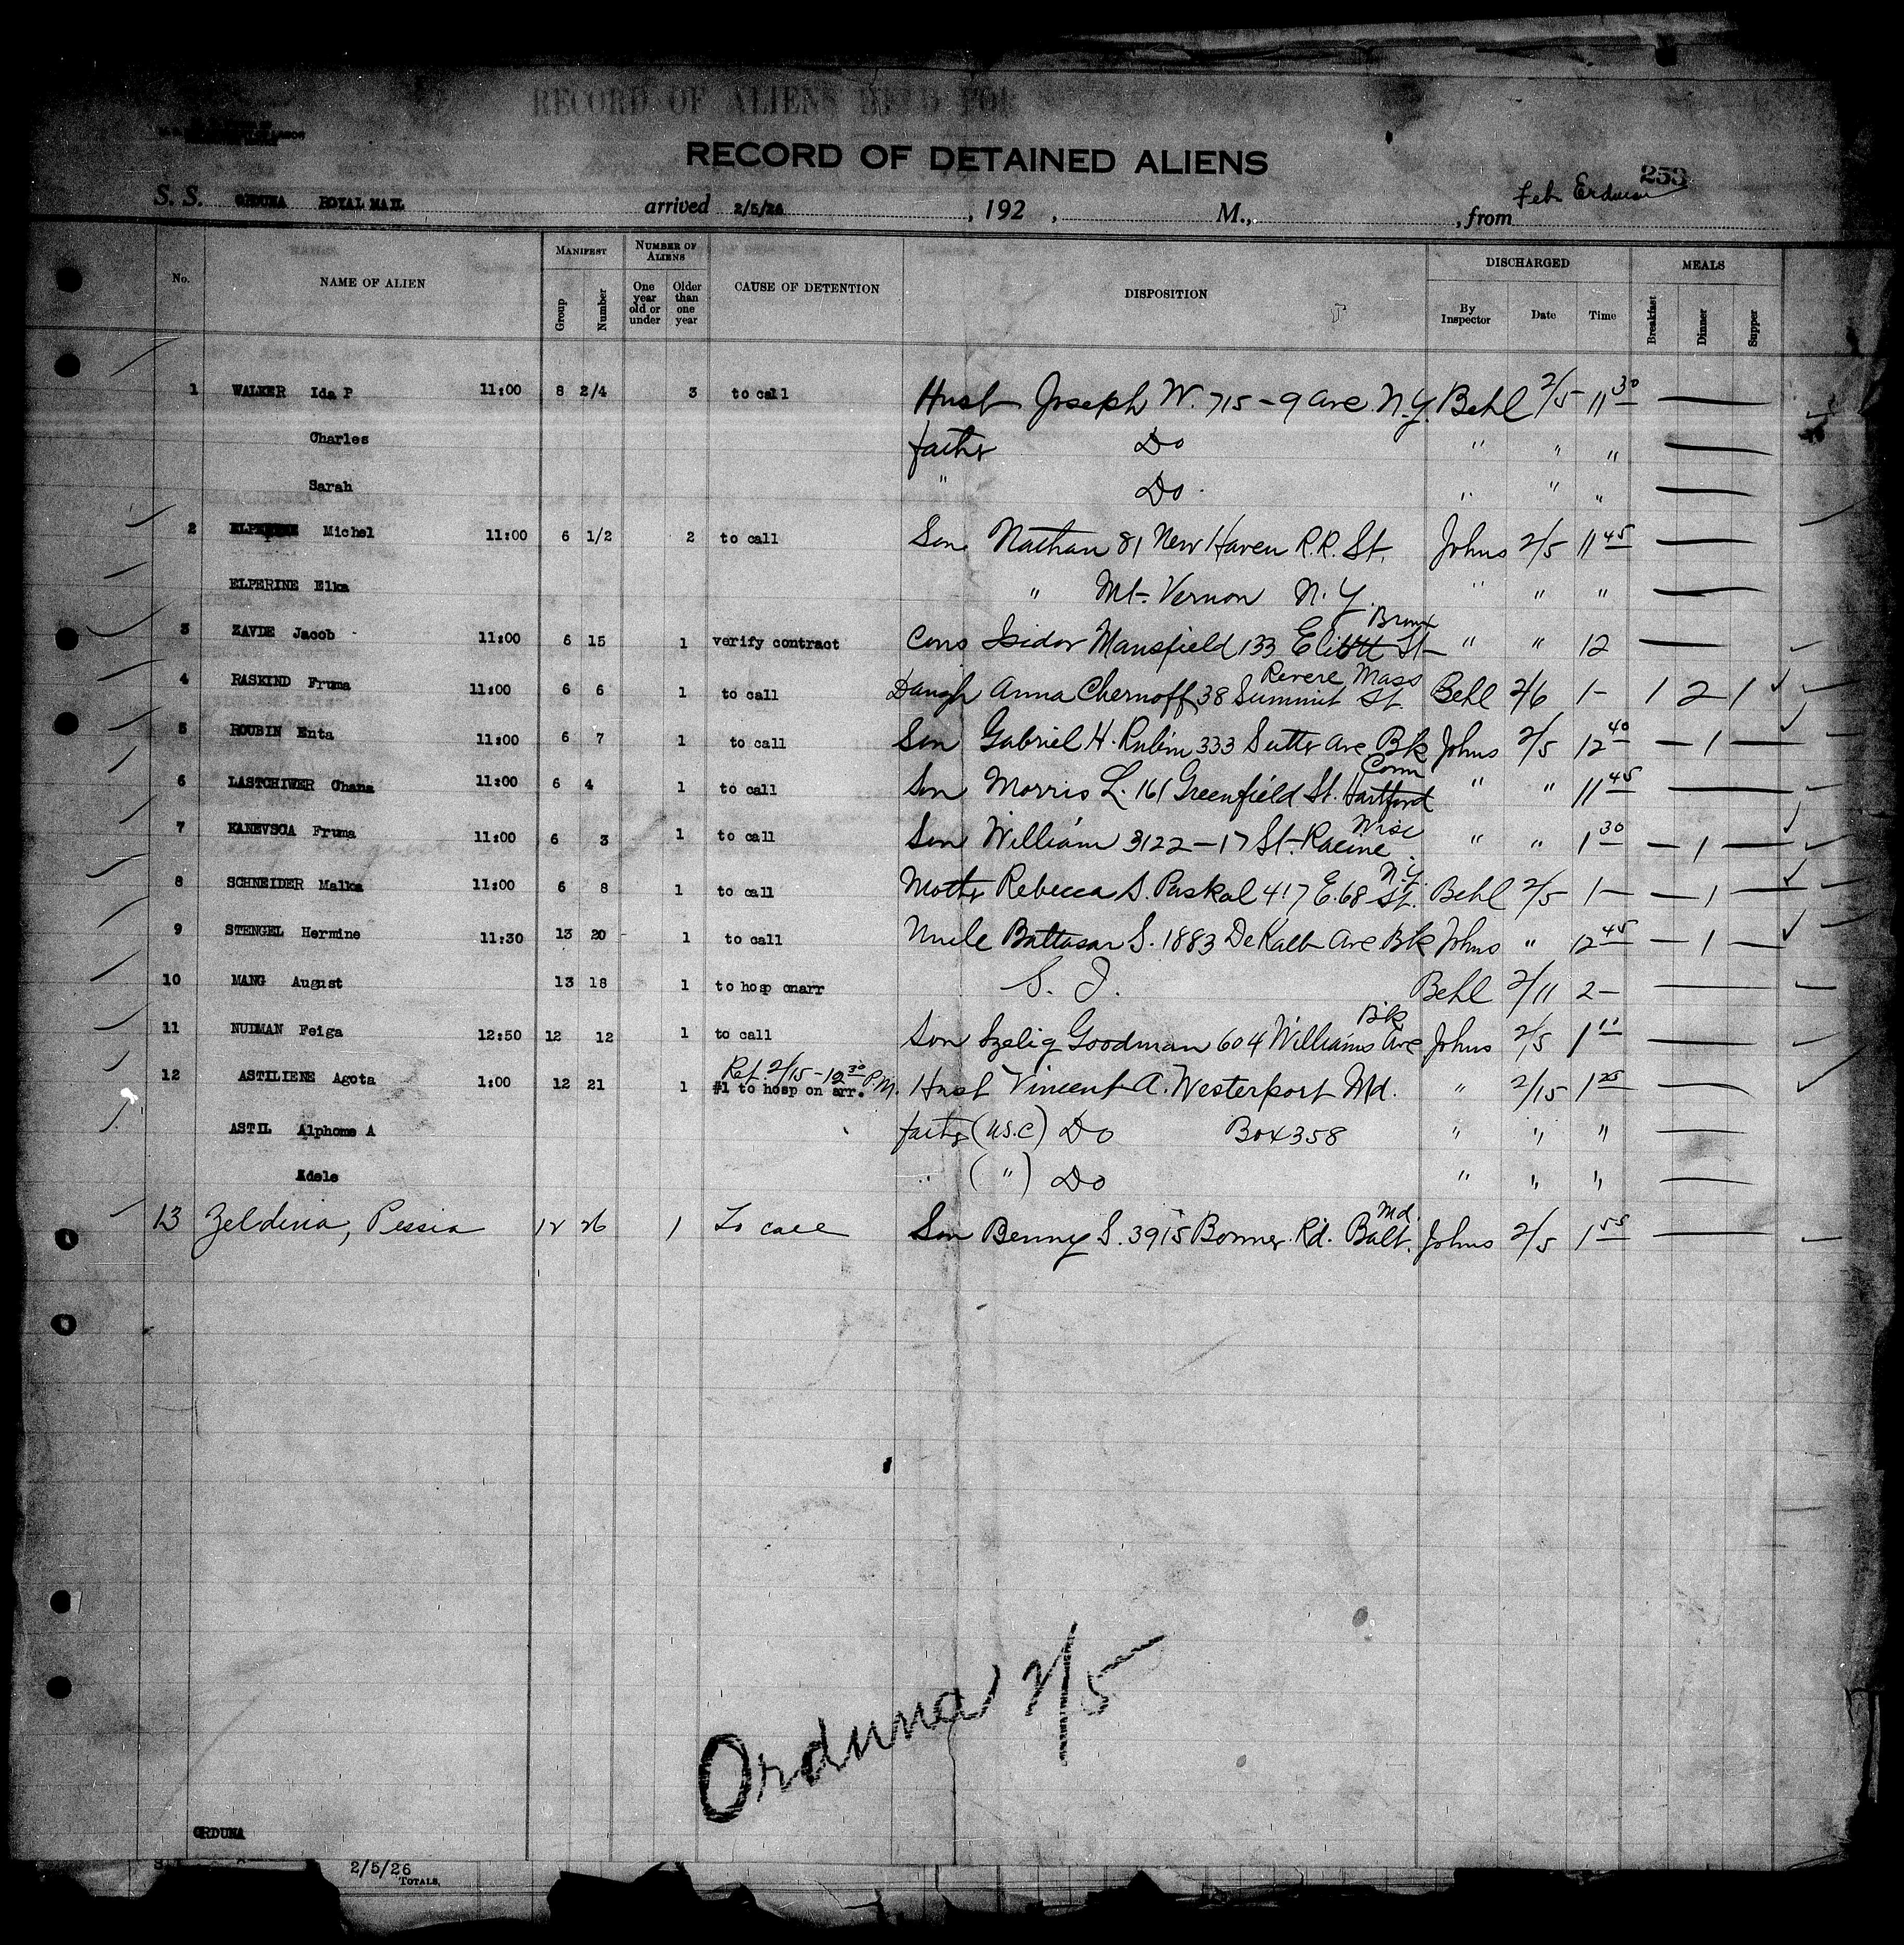 RECORD OF ALIENS HELD FOR
RECORD OF DETAINED ALIENS
253
S. S. ORDUNA ROYAL MAIL arrived 2/5/26, 192 , M., , from
No. NAME OF ALIEN MANIFEST Group Number NUMBER OF ALIENS One year old or under Older than one year CAUSE OF DETENTION DISPOSITION DISCHARGED By Inspector Date Time MEALS Breakfast Dinner Supper
1 WALKER Ida P 11:00 8 2/4 3 to call Husb Joseph W. 715-9 Ave N.Y. Behl 2/5 11 30
Charles father Do " " "
Sarah " Do " " "
2 ELPERINE Michel 11:00 6 1/2 2 to call Son Nathan 81 New Haven R.R. St. Johns 2/5 11 45
ELPERINE Elka " Mt. Vernon N.Y. " " "
3 ZAVDE Jacob 11:00 6 15 1 verify contract Cons Isidor Mansfield 133 St Bronx " " 12
4 RASKIND Fruma 11:00 6 6 1 to call Daugh Anna Chernoff 38 Summit St. Revere Mass Behl 2/6 1- 1 2 1
5 ROUBIN Enta 11:00 6 7 1 to call Son Gabriel H. Rubin 333 Sutter Ave Bk Johns 2/5 12 40 — 1 —
6 LASTCHIWER Chana 11:00 6 4 1 to call Son Morris L. 161 Greenfield St. Hartford Conn " " 11 45
7 KANEVSCA Fruma 11:00 6 3 1 to call Son William 3122-17 St. Racine Wisc " " 1 30 — 1 —
8 SCHNEIDER Malka 11:00 6 8 1 to call Mother Rebecca S. Paskal 417 E. 68 St. N.Y. Behl 2/5 1- — 1 —
9 STENGEL Hermine 11:30 13 20 1 to call Uncle Baltasar S. 1883 DeKalb Ave Bk Johns " 12 45 — 1 —
10 MANG August 13 18 1 to hosp onarr S. I. Behl 2/11 2-
11 NUDMAN Feiga 12:50 12 12 1 to call Son Szelig Goodman 604 Williams Ave Bk Johns 2/5 1 11
Ret. 2/15-12 30 P.M.
12 ASTILIENE Agota 1:00 12 21 1 #1 to hosp on arr. Husb Vincent A. Westerport Md. " 2/15 1 25
ASTIL Alphome A father (U.S.C) Do Box 358 " " "
Adele " (") Do " " "
13 Zeldina, Pessia 12 26 1 To call Son Benny S. 3915 Bonner Rd. Balt. Md. Johns 2/5 1 55
Orduna 2/5
ORDUNA
2/5/26
TOTALS,